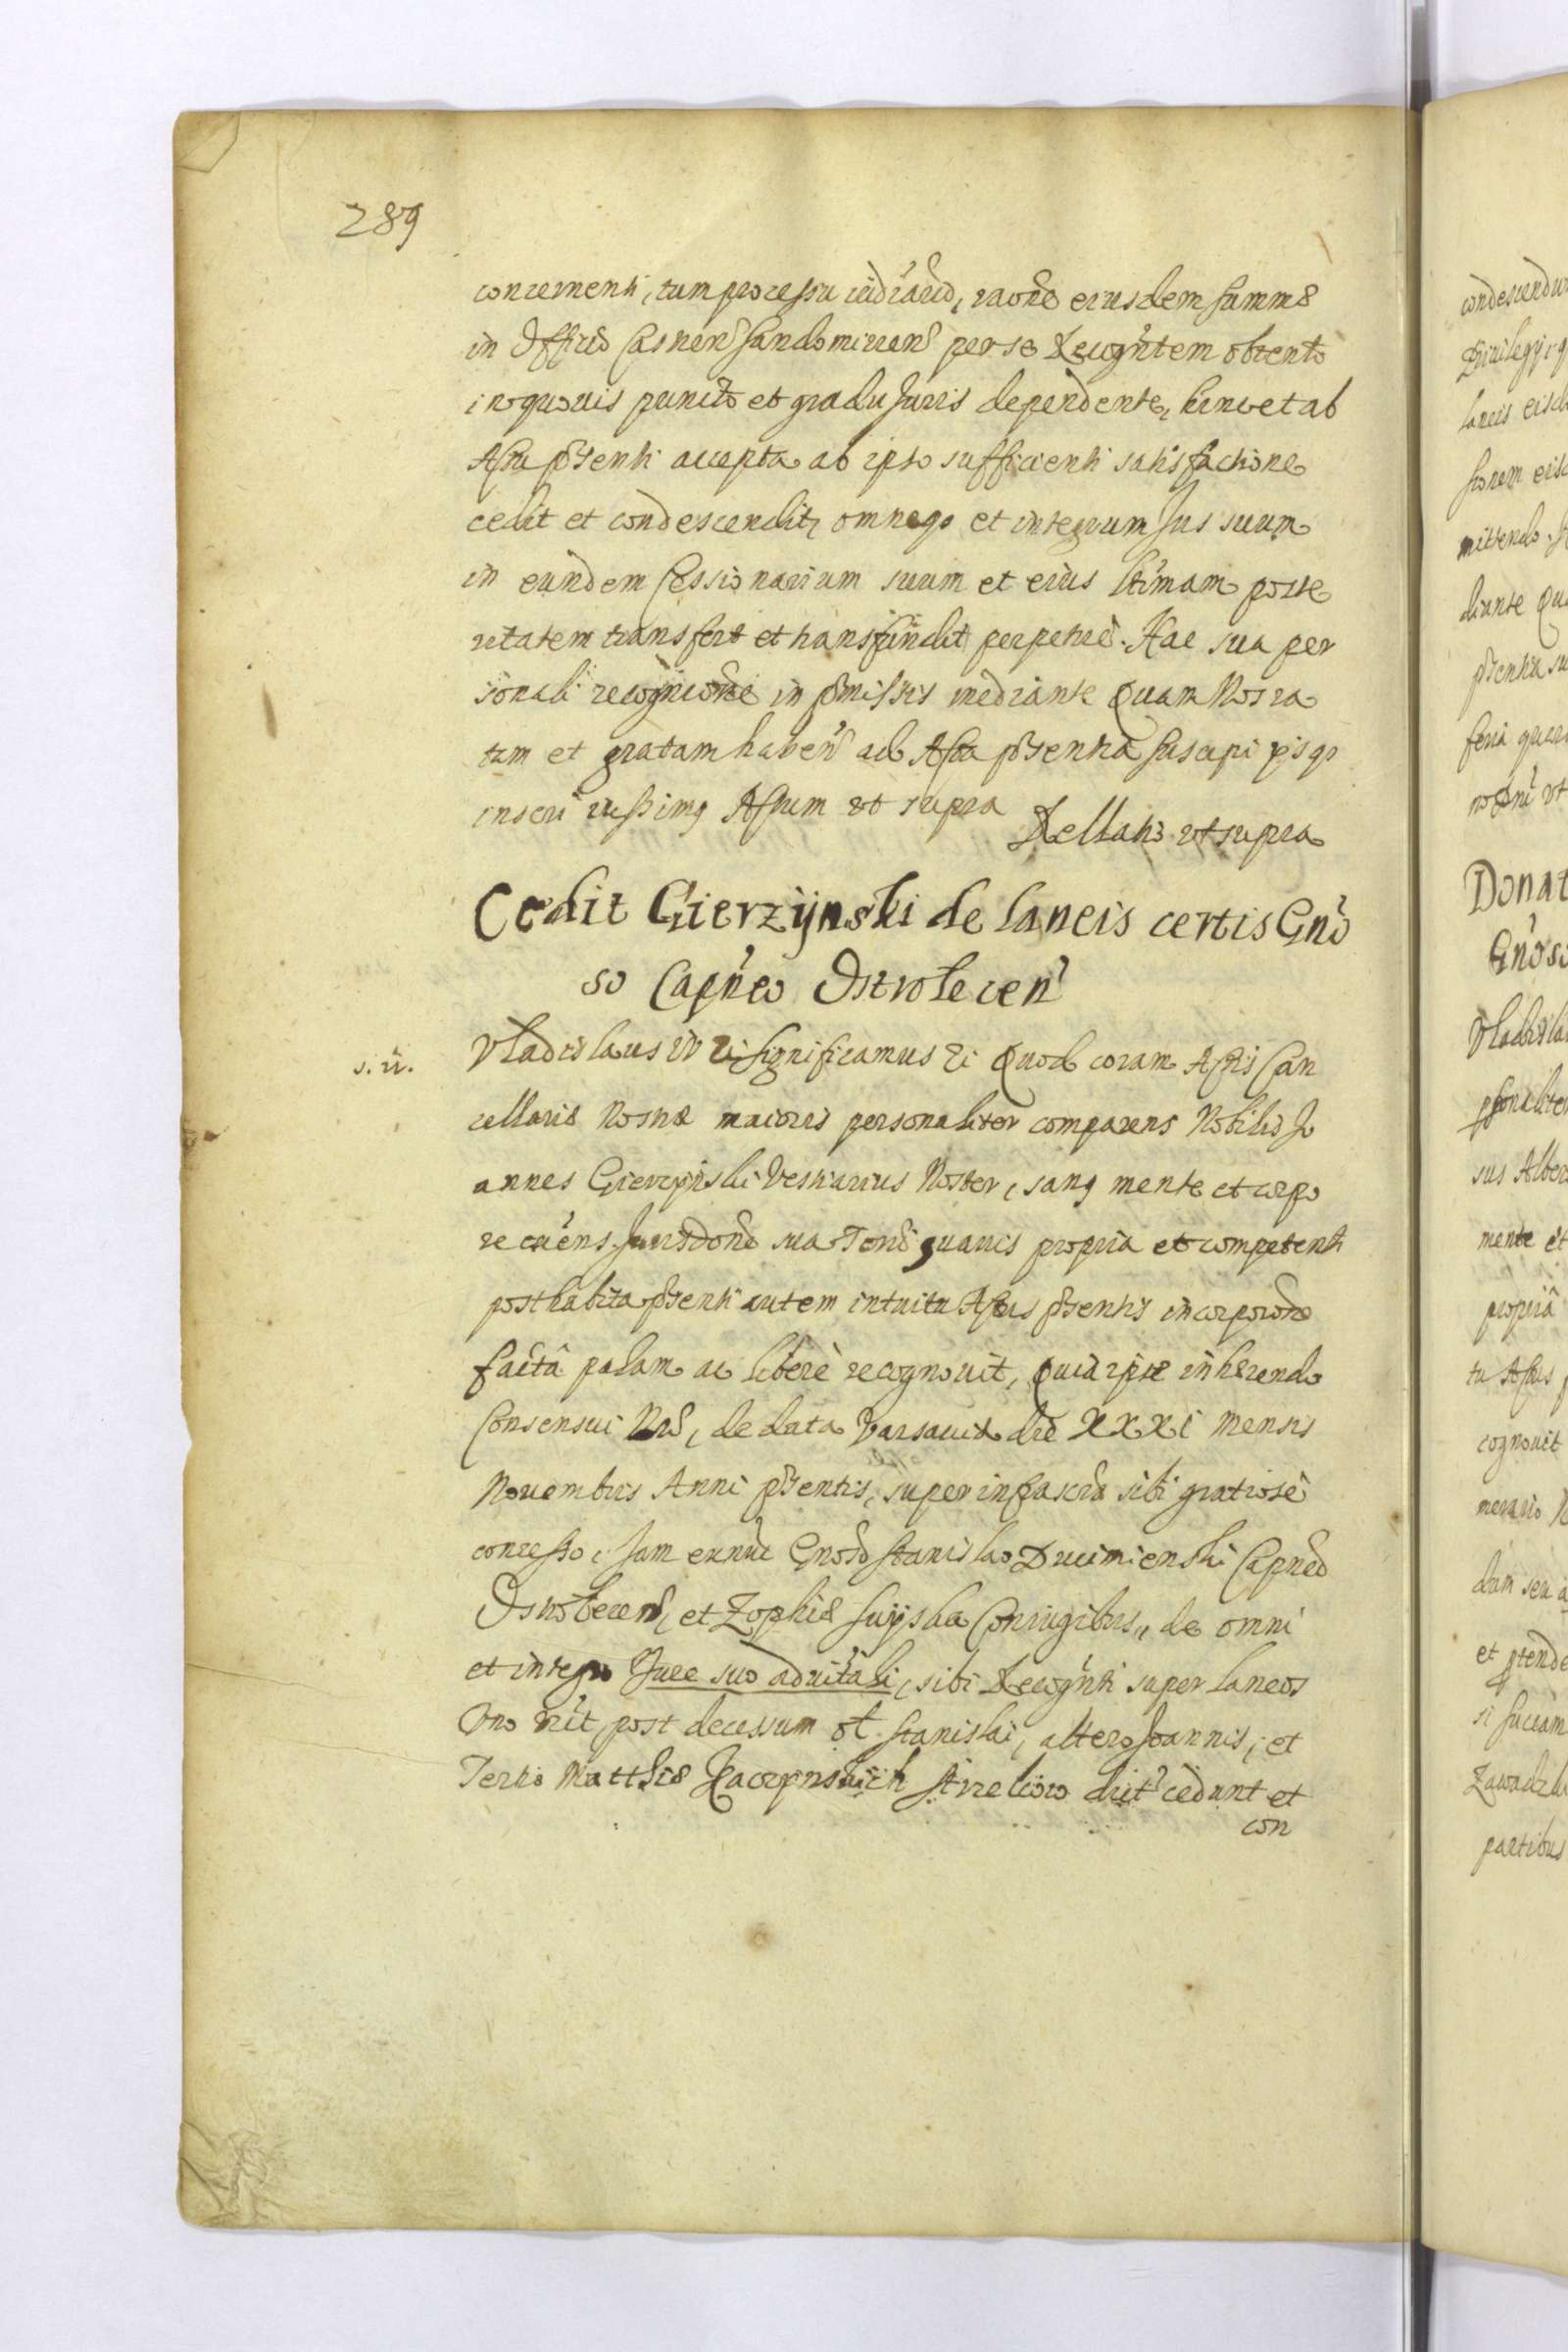 289
concernenti, tum processu iudiciario, raone eiusdem summæ
in Officio Casnen Sandomirien per se Recogntem obtento
in quouis puncto et gradu Juris dependente, hinc et ab
Actu pnti accepta ab ipso sufficienti satisfactione
cedit et condescendit, omneqe et integrum Jus suum
in eundem Cessionarium suum et eius ltimam poste
ritatem transfert et transfundit perpetuè. Hac sua per
sonali recognicione in pmissis mediante Quam Nos ra
tam et gratam haben ad Acta pntia suscipi ysqe
inscri iussimq Actum vt supra
Rellatio vt supra
Cedit Gierzÿnski de laneis certis Gnò
so Capneo Ostrolecen
s. ii.
Vladislaus IV Significamus Quod coram Actis Can
cellariæ Nostræ maioris personaliter comparens Nobilis Jo
annes Gierzÿnski Vestiarius Noster, sanq mente et corpo
re exnens Jurisdone sua quauis propria et competenti
posthabita pnti autem intuitu Actus pntis incorporone
factâ palam ac liberè recognouit, Quia ipse inhærendo
Consensui Nro, de data Varsauiæ die XXXI Mensis
Nouembris Anni pntis, super infrascta sibi gratiosè
concesso, Gnoso Stanislao Druimienski Capneo
Ostrolecen, et Zophiæ Suÿska Coniugibus, de omni
et integro Jure suo aduitali, sibi Recognti super laneos
Vno post decessum ol Stanislai, altero Joannis, et
Tertio Matthiæ Kacepinskich Strzelcow cedunt et
con
condescendun
Priuilegij q
laneis eisd
sionem eisd
mittendo.
diante Qua
pntia su
feria quar
vt
Donat
Gnoso
Vladisla
psonaliter
sus Alber
mente et
propriâ
tu Actus p
cognouit
dum seu a
et ptende
si
Zawadzk
partibus